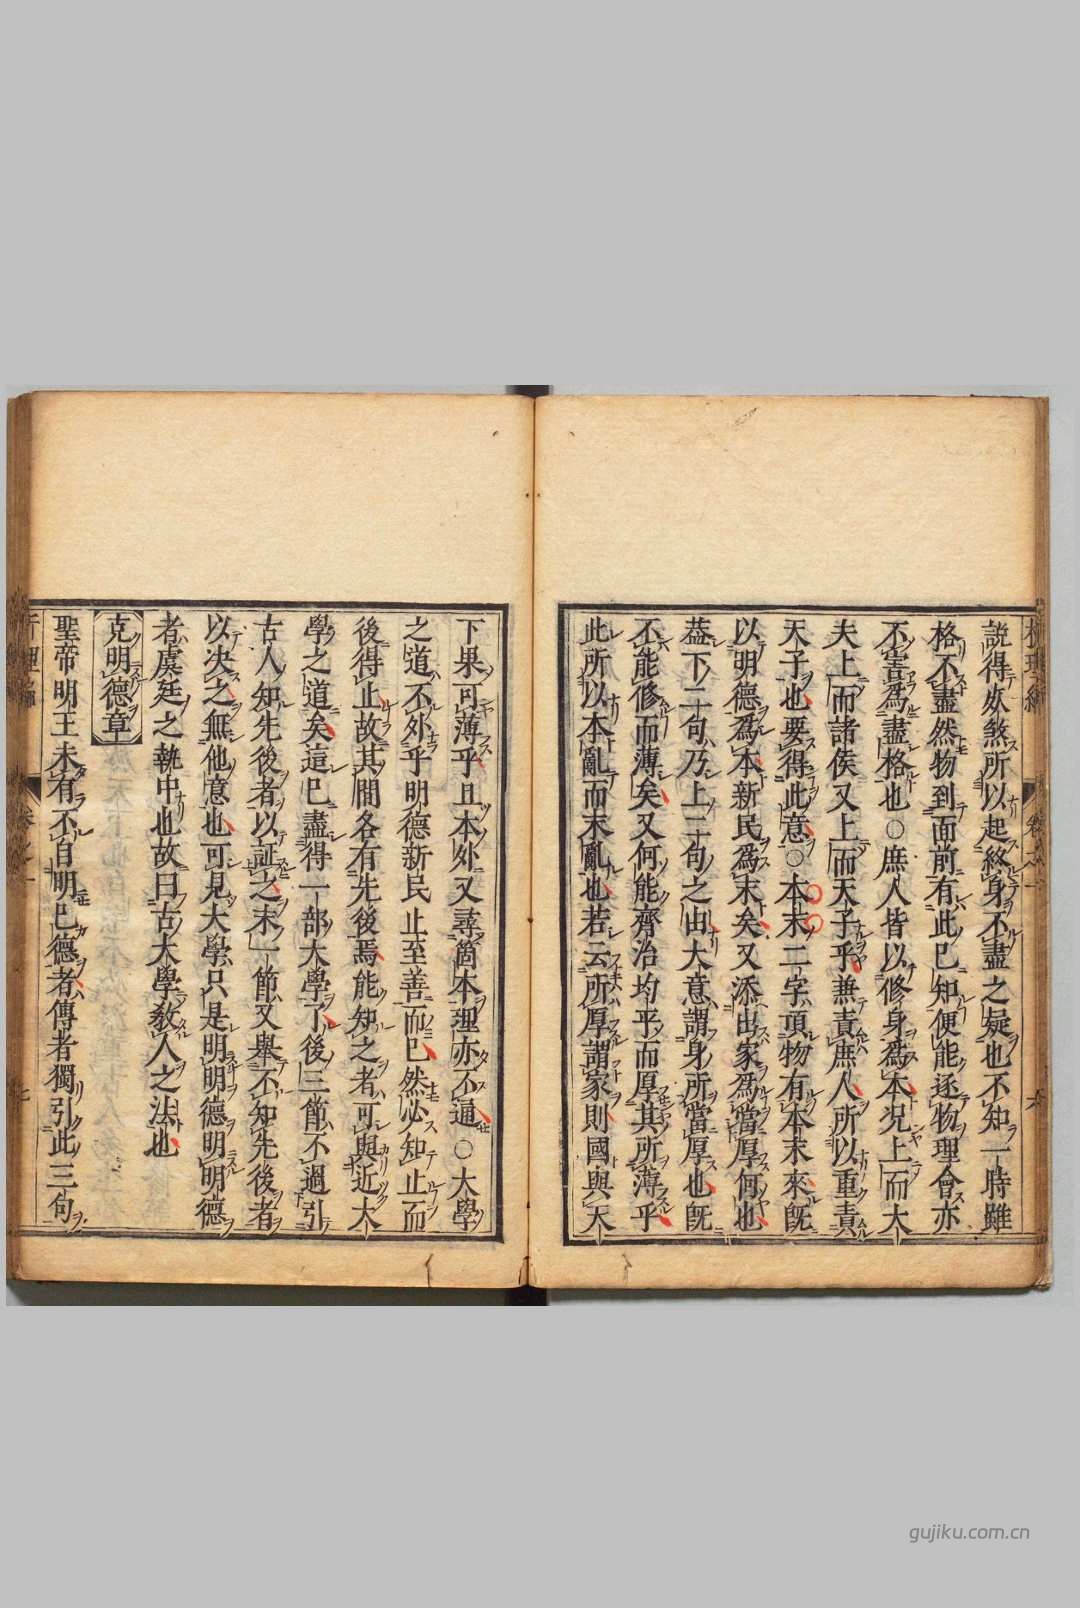 說得欤煞所以起終身不盡之疑也不知一時雖
格不盡然物到面前有此已知便能逐物理會亦
不害為盡格也○庶人皆以修身為本况上而大
夫上而諸侯又上而天子乎兼責庶人所以重責
天子也要得此意○本末二字頂物有本末來旣
以明德為本新民為末矣又添出家為當厚何也
葢下二句乃上二句之由大意謂身所當厚也旣
不能修而薄矣又何能齊治均平而厚其所薄乎
此所以本亂而末亂也若云所厚謂家則國與天
下果可薄乎且本外又尋箇本理亦不通○大學
之道不外乎明德新民止至善而已然必知止而
後得止故其間各有先後焉能知之者可與近大
學之道矣這已盡得一部大學了後三節不過引
古人知先後者以証之末一節又舉不知先後者
以決之無他意也可見大學只是明明德明明德
者虞廷之執中也故曰古大學教人之法也
克明德章
聖帝明王未有不自明已德者傳者獨引此三句
gujiku.com.cn